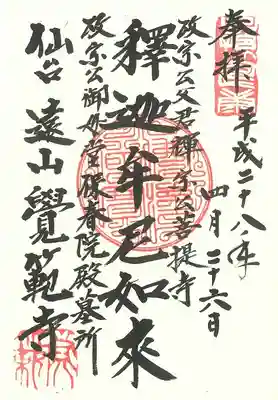 奉拝
平成二十八年
四月二十六日
政宗公父君輝宗公菩提寺
釋迦牟尼如来
政宗公御母堂保春院殿墓所
仙台遠山覺範寺